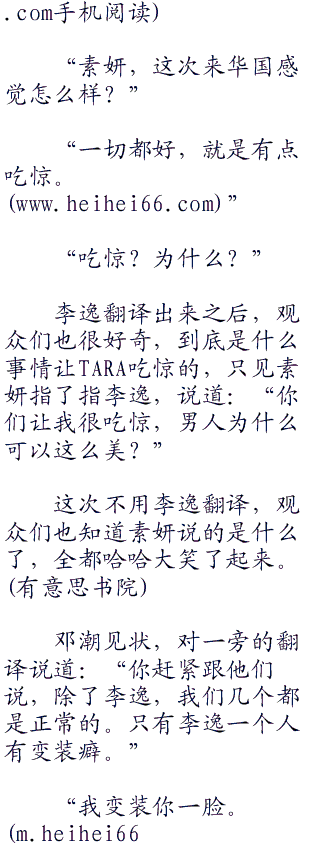 .com手机阅读)
“素妍，这次来华国感
觉怎么样？”
“一切都好，就是有点
吃惊。
(www.heihei66.com)”
“吃惊？为什么？”
李逸翻译出来之后，观
众们也很好奇，到底是什么
事情让TARA吃惊的，只见素
妍指了指李逸，说道：“你
们让我很吃惊，男人为什么
可以这么美？”
这次不用李逸翻译，观
众们也知道素妍说的是什么
了，全都哈哈大笑了起来。
(有意思书院)
邓潮见状，对一旁的翻
译说道：“你赶紧跟他们
说，除了李逸，我们几个都
是正常的。只有李逸一个人
有变装癖。”
“我变装你一脸。
(m.heihei66